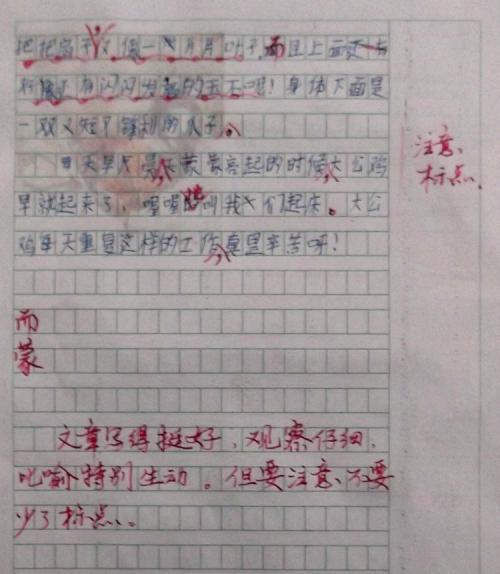 把把扇子又像一片片叶子,而且上面还有
好像有闪闪发的玉石呢!身体下面是
一双又短又锋利的爪子。
每天早晨天蒙蒙亮起的时候大公鸡
早就起来了,喔喔地叫我们起床。大公
鸡每天重复这样的工作真是辛苦呀!
注意
标点
而
蒙
文章写得挺好,观察仔细,
比喻特别生动。但要注意不要
少了标点。